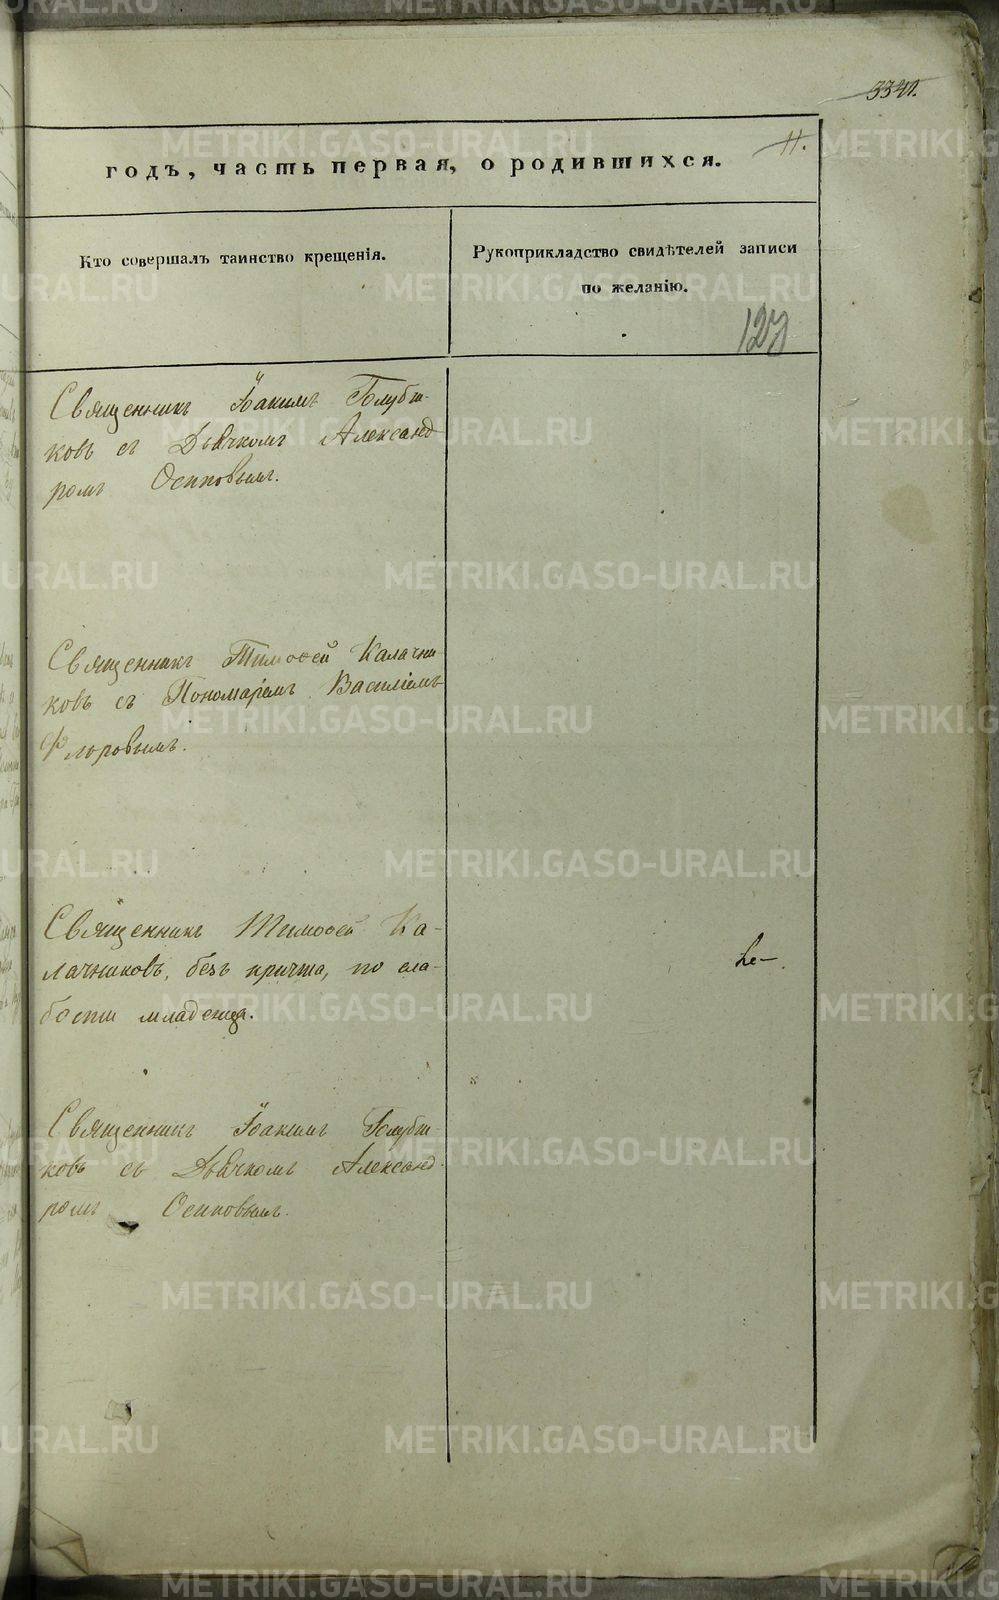 334
11.
годъ, часть первая, о родившихся.
Кто совершалъ таинство крещенія.
Рукоприкладство свидѣтелей записи
по желанію.
Священникъ Іоакимъ Голубчи-
ковъ съ Дьячкомъ Александ
ромъ Осиповымъ.
Священникъ Тимоѳей Калачни-
ковъ съ Пономаремъ Василіемъ
Флоровымъ.
Священникъ Тимоѳей Ка-
лачниковъ, безъ причта, по сла-
бости младенца.
Священникъ Іоакимъ Голубчи-
ковъ съ Дьячкомъ Александ
ромъ Осиповымъ.
METRIKI.GASO-URAL.RU